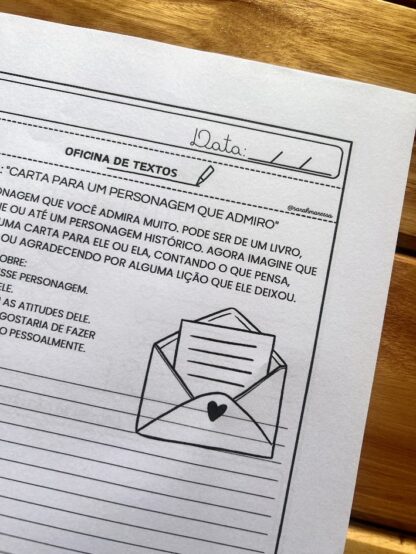 Data: __/__/__
OFICINA DE TEXTOS
@sarahmanessa
: "CARTA PARA UM PERSONAGEM QUE ADMIRO"
ONAGEM QUE VOCÊ ADMIRA MUITO. PODE SER DE UM LIVRO,
E OU ATÉ UM PERSONAGEM HISTÓRICO. AGORA IMAGINE QUE
UMA CARTA PARA ELE OU ELA, CONTANDO O QUE PENSA,
OU AGRADECENDO POR ALGUMA LIÇÃO QUE ELE DEIXOU.
OBRE:
ESSE PERSONAGEM.
ELE.
AS ATITUDES DELE.
GOSTARIA DE FAZER
O PESSOALMENTE.